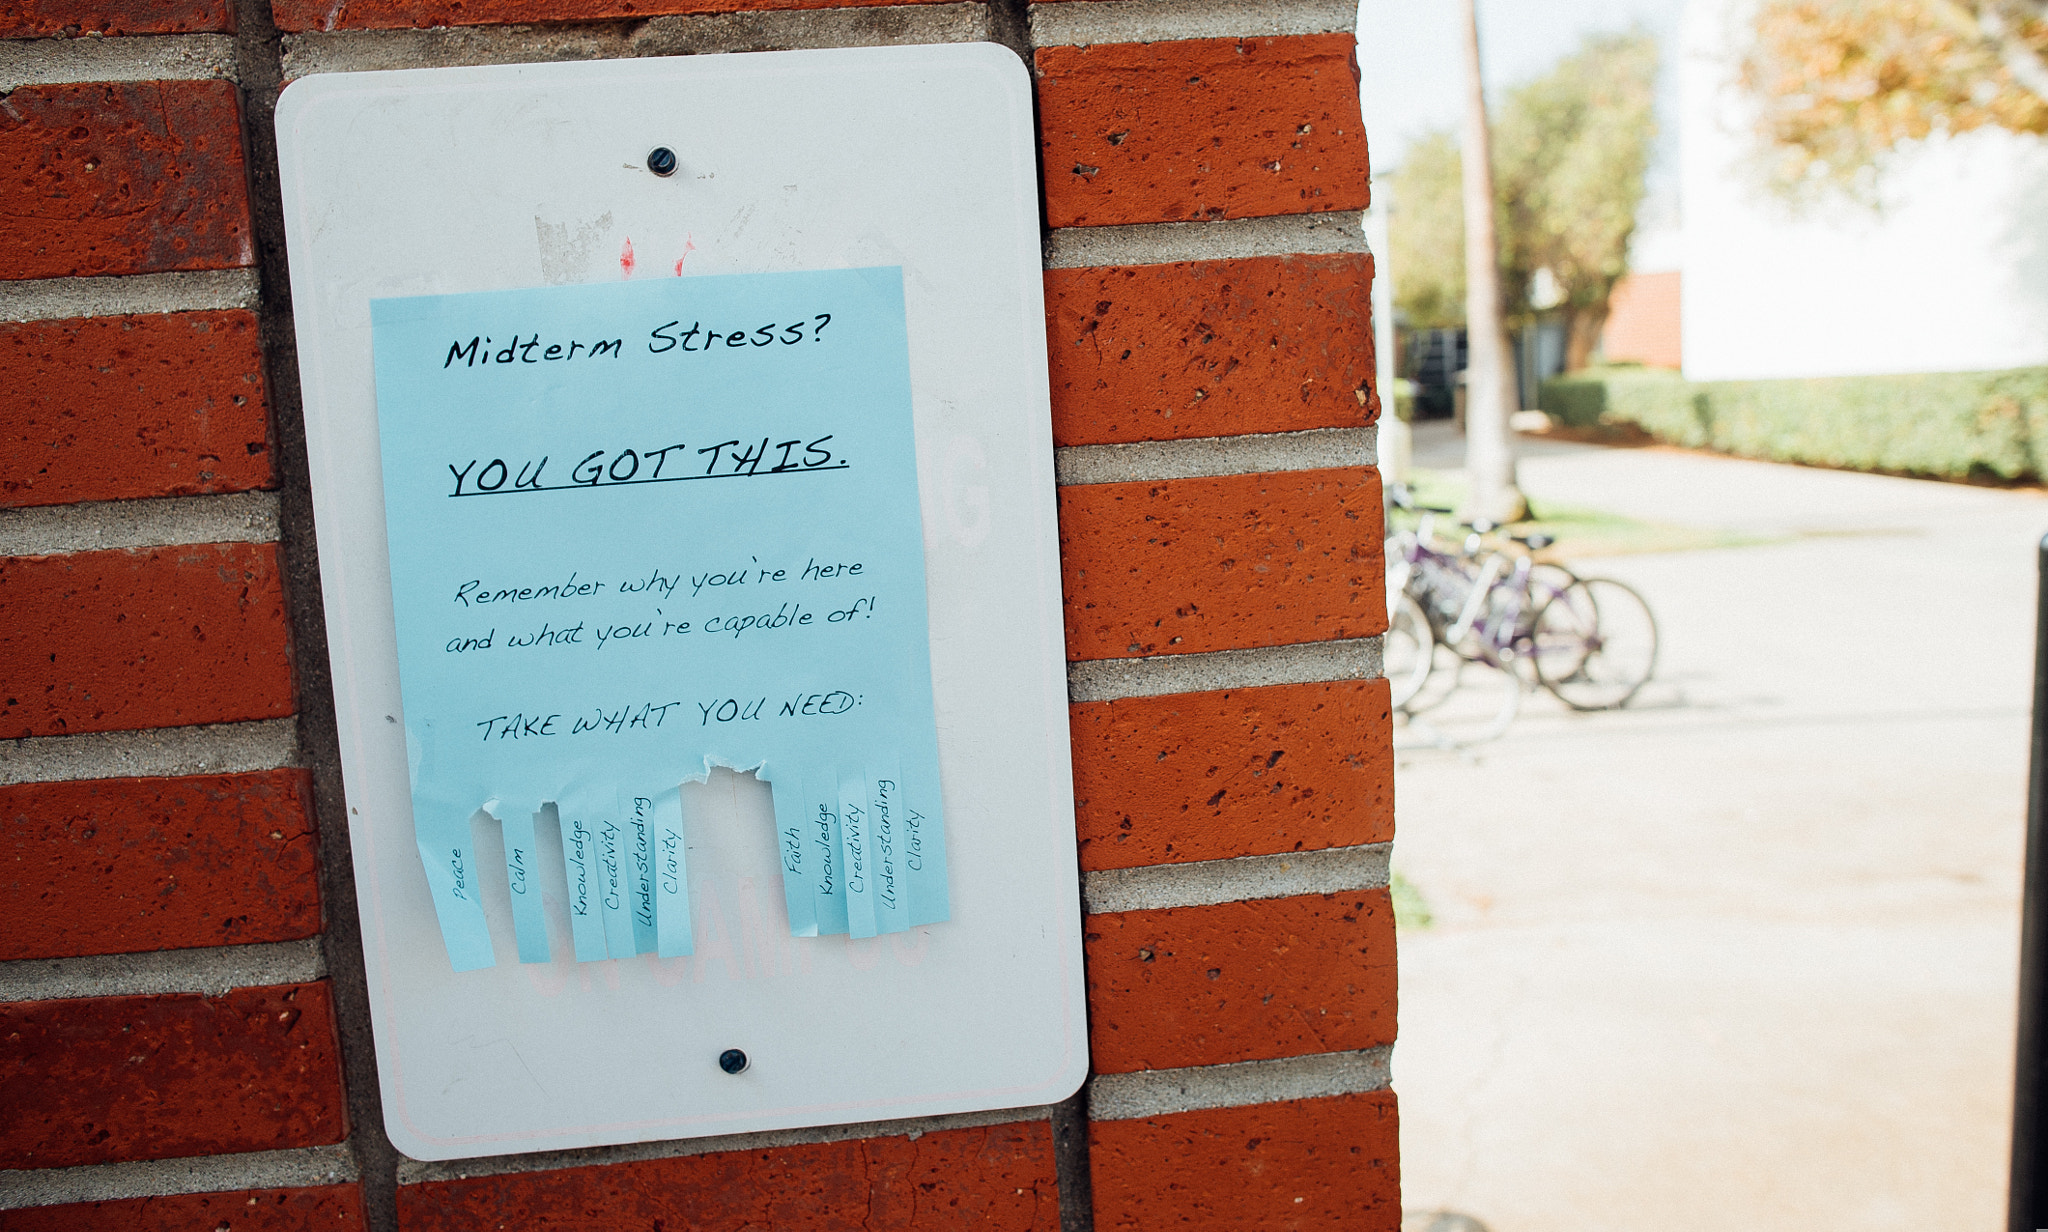 Midterm Stress?
YOU GOT THIS.
Remember why you're here
and what you're capable of!
TAKE WHAT YOU NEED:
Peace
Calm
Knowledge
Creativity
Understanding
Clarity
Faith
Knowledge
Creativity
Understanding
Clarity